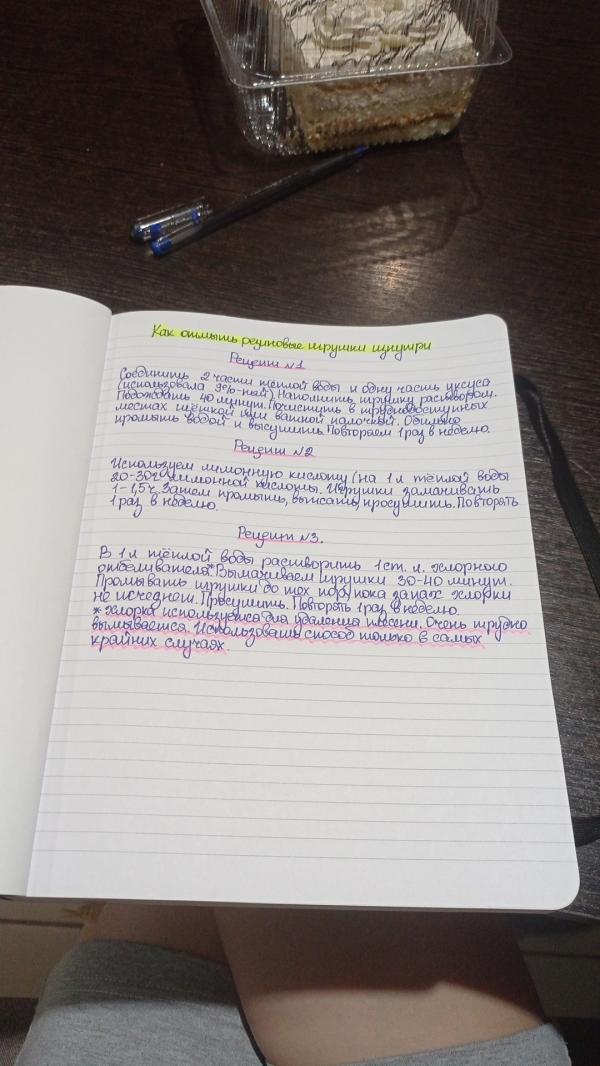 Как отмыть резиновые игрушки изнутри
Рецепт №1
Соединить 2 части тёплой воды и одну часть уксуса
(использовала 9%-ный). Наполнить игрушку раствором.
Подождать 40 минут. Почистить в труднодоступных
местах щёткой или ватной палочкой. Обильно
промыть водой и высушить. Повторяем 1 раз в неделю.
Рецепт №2
Используем лимонную кислоту (на 1 л тёплой воды
20-30г лимонной кислоты. Игрушки замачивать
1-1,5ч. Затем промыть, высать, просушить. Повторять
1 раз в неделю.
Рецепт №3.
В 1 л тёплой воды растворить 1 ст. л. хлорного
отбеливателя*. Вымачиваем игрушки 30-40 минут.
Промывать игрушки до тех пор, пока запах хлорки
не исчезнет. Просушить. Повторять 1 раз в неделю.
* хлорка используется для удаления плесени. Очень трудно
вымывается. Использовать способ только в самых
крайних случаях.